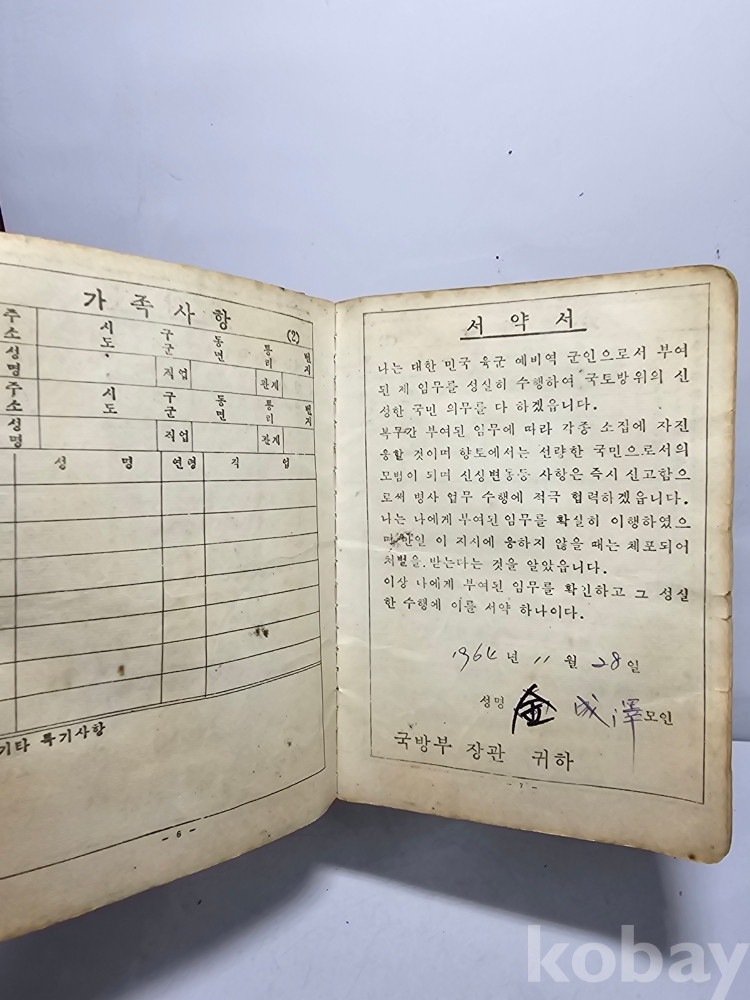 가족사항
(2)
주소 시도 구군 동면 통리 번지
성명 직업 관계
주소 시도 구군 동면 통리 번지
성명 직업 관계
성 명 연령 직 업
기타 특기사항
- 6 -
서 약 서
나는 대한 민국 육군 예비역 군인으로서 부여
된 제 임무를 성실히 수행하여 국토방위의 신
성한 국민 의무를 다 하겠읍니다.
복무간 부여된 임무에 따라 각종 소집에 자진
응할 것이며 향토에서는 선량한 국민으로서의
모범이 되며 신상변동등 사항은 즉시 신고함으
로써 병사 업무 수행에 적극 협력하겠읍니다.
나는 나에게 부여된 임무를 확실히 이행하였으
며 만인 이 지시에 응하지 않을 때는 체포되어
처벌을 받는다는 것을 알았읍니다.
이상 나에게 부여된 임무를 확인하고 그 성실
한 수행에 이를 서약 하나이다.
1964년 11월 28일
성명 金成澤 모인
국방부 장관 귀하
- 7 -
kobay